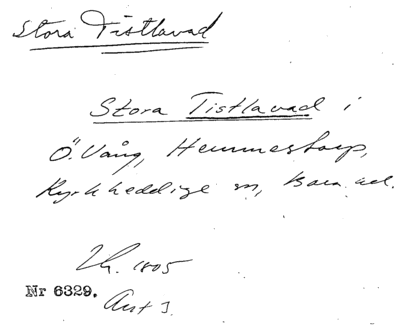 Stora Tistlavad
Stora Tistlavad i
Ö. Vång, Hemmestorp,
Kyrkheddige sn, Bara hd.
Lh. 1805
Nr 6329. Akt 3.